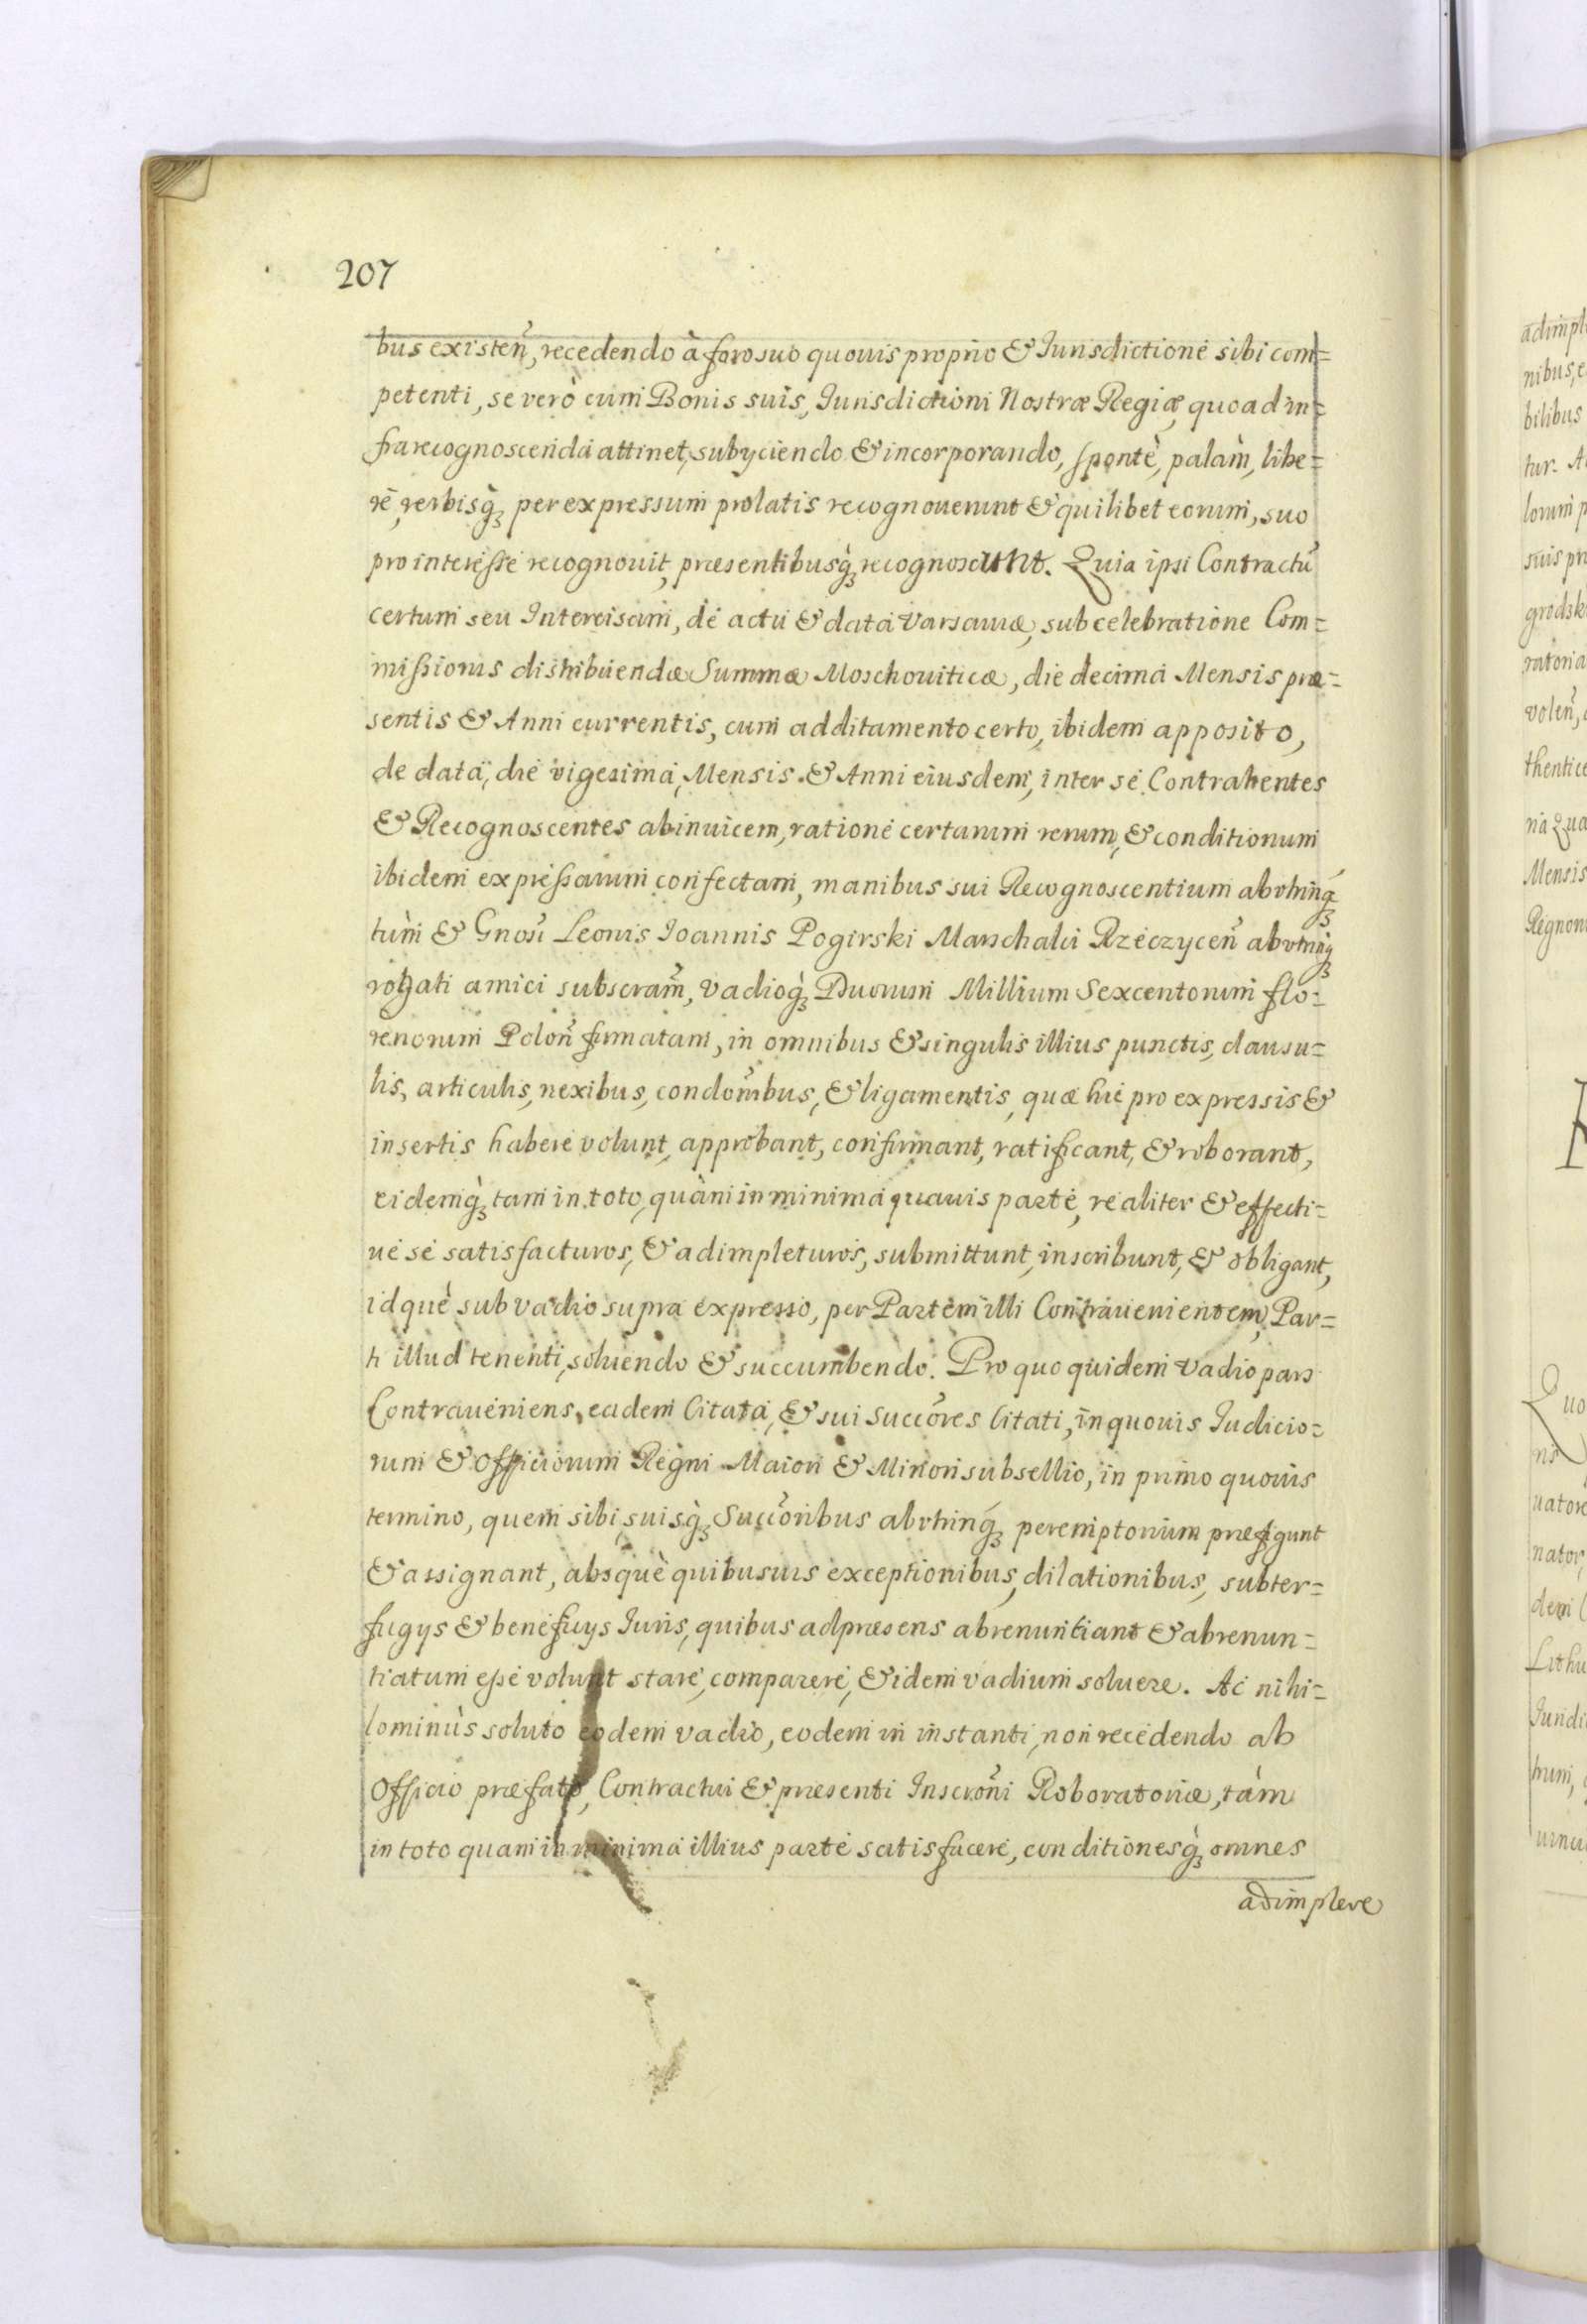 207
bus existeñ, recedendo à foro suo quouis proprio & Iurisdictione sibi com=
petenti, se verò cum Bonis suis, Iurisdictioni Nostræ Regiæ, quoad in=
fra recognoscenda attinet, subyciendo & incorporando, sponte, palàm, libe=
rè, verbisq́ per expressum prolatis recognouerunt & quilibet eorum, suo
pro interesse recognouit, præsentibusq́ recognoscunt. Quia ipsi Contractũ
certum seu Intercisam, de actu & data Varsauiæ, sub celebratione Com=
missionis distribuendæ Summæ Moschouiticæ, die decima Mensis præ=
sentis & Anni currentis, cum additamento certo, ibidem apposito,
de data, die vigesima, Mensis & Anni eiusdem, inter se Contrahentes
& Recognoscentes abinuicem, ratione certarum rerum, & conditionum
ibidem expressarum confectam, manibus sui Recognoscentium abvtrinq́
tùm & Gnosi Leonis Ioannis Pogirski Marschalci Rzeczyceñ abvtrinq́
rogati amici subscram̃, vadioq́ Duorum Millium Sexcentorum flo=
renorum Poloñ firmatam, in omnibus & singulis illius punctis, clausu=
lis, articulis, nexibus, condoñibus, & ligamentis, quæ hic pro expressis &
insertis habere volunt, approbant, confirmant, ratificant, & roborant,
eidemq́ tam in toto, quàm in minima quauis parte, realiter & effecti=
ue se satisfacturos, & adimpleturos, submittunt, inscribunt, & obligant,
idquè sub vadio supra expresso, per Partem illi Contrauenientem, Par=
ti illud tenenti, soluendo & succumbendo. Pro quo quidem vadio pars
Contraueniens, eadem Citata, & sui Succõres Citati, in quouis Iudicio=
rum & Officiorum Regni Maiori & Minori subsellio, in primo quouis
termino, quem sibi suisq́ Succõribus abvtrinq́ peremptorium præfigunt
& assignant, absquè quibusuis exceptionibus, dilationibus, subter=
fugys & beneficys Iuris, quibus ad præsens abrenuntiant & abrenun=
tiatum esse volunt stare, comparere, & idem vadium soluere. Ac nihi=
lominùs soluto eodem vadio, eodem in instanti, non recedendo ab
Officio præfato, Contractui & præsenti Inscroñi Roboratoriæ, tàm
in toto quam in minima illius parte satisfacere, conditionesq́ omnes
adimplere